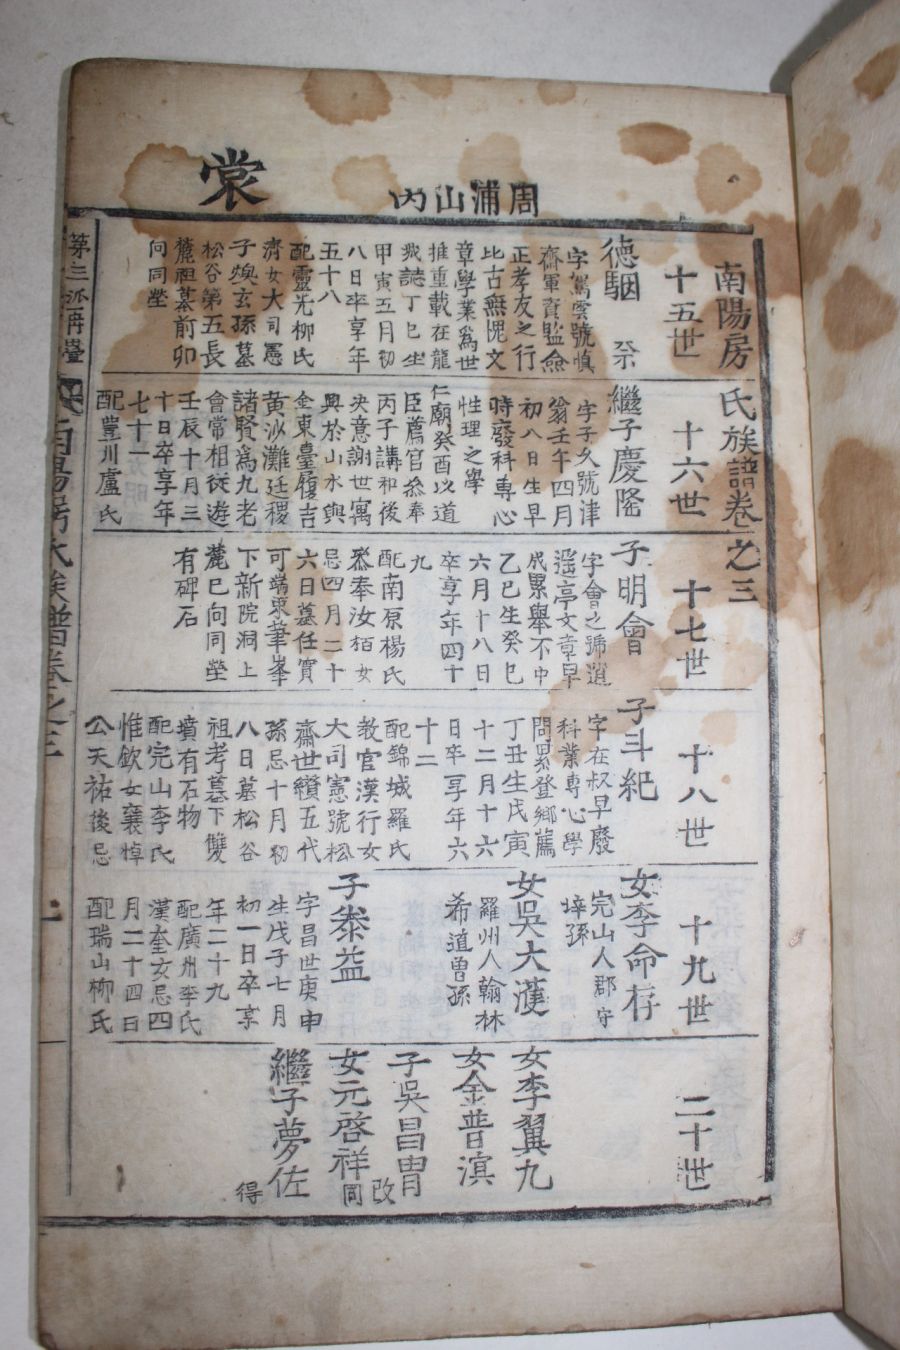 裳
周浦山內
南陽房氏族譜卷之三
十五世
十六世
十七世
十八世
十九世
二十世
德駰
字駕雲號慎
齋軍資監僉
正孝友之行
比古無愧文
章學業爲世
推重載在龍
誌丁巳生
甲寅五月初
八日卒享年
五十八
配靈光柳氏
濟女大司憲
子煥玄孫墓
松谷第五長
麓祖墓前卯
向同塋
繼子慶隆
字子久號津
翁壬午四月
初八日生早
時廢科專心
性理之學
仁廟癸酉以道
臣薦官參奉
丙子講和後
決意謝世寓
興於山水與
金東臺履吉
黃沙灘廷稷
諸賢爲九老
會常相從遊
壬辰十月三
十日卒享年
七十一
配豊川盧氏
子明會
字會之號逍
遙亭文章早
成累舉不中
乙巳生癸巳
六月十八日
卒享年四十
九
配南原楊氏
參奉汝栢女
忌四月二十
六日墓任實
可端東華峯
下新院洞上
麓巳向同塋
有碑石
子斗紀
字在叔早廢
科業專心學
問累登鄉薦
丁丑生戊寅
十二月十六
日卒享年六
十二
配錦城羅氏
教官漢行女
大司憲號松
齋世纘五代
孫忌十月初
八日墓松谷
祖考墓下雙
墳有石物
配完山李氏
惟欽女襄悼
公天祐後忌
女李命存
完山人郡守
梓孫
女吳大漢
羅州人翰林
希道曾孫
子泰益
字昌世庚申
生戊子七月
初一日卒享
年二十九
配廣州李氏
漢奎女忌四
月二十四日
配瑞山柳氏
女李翼九
女金普濱
子吳昌冑
改
女元啓祥
同
繼子夢佐
得
南陽房氏族譜卷之三